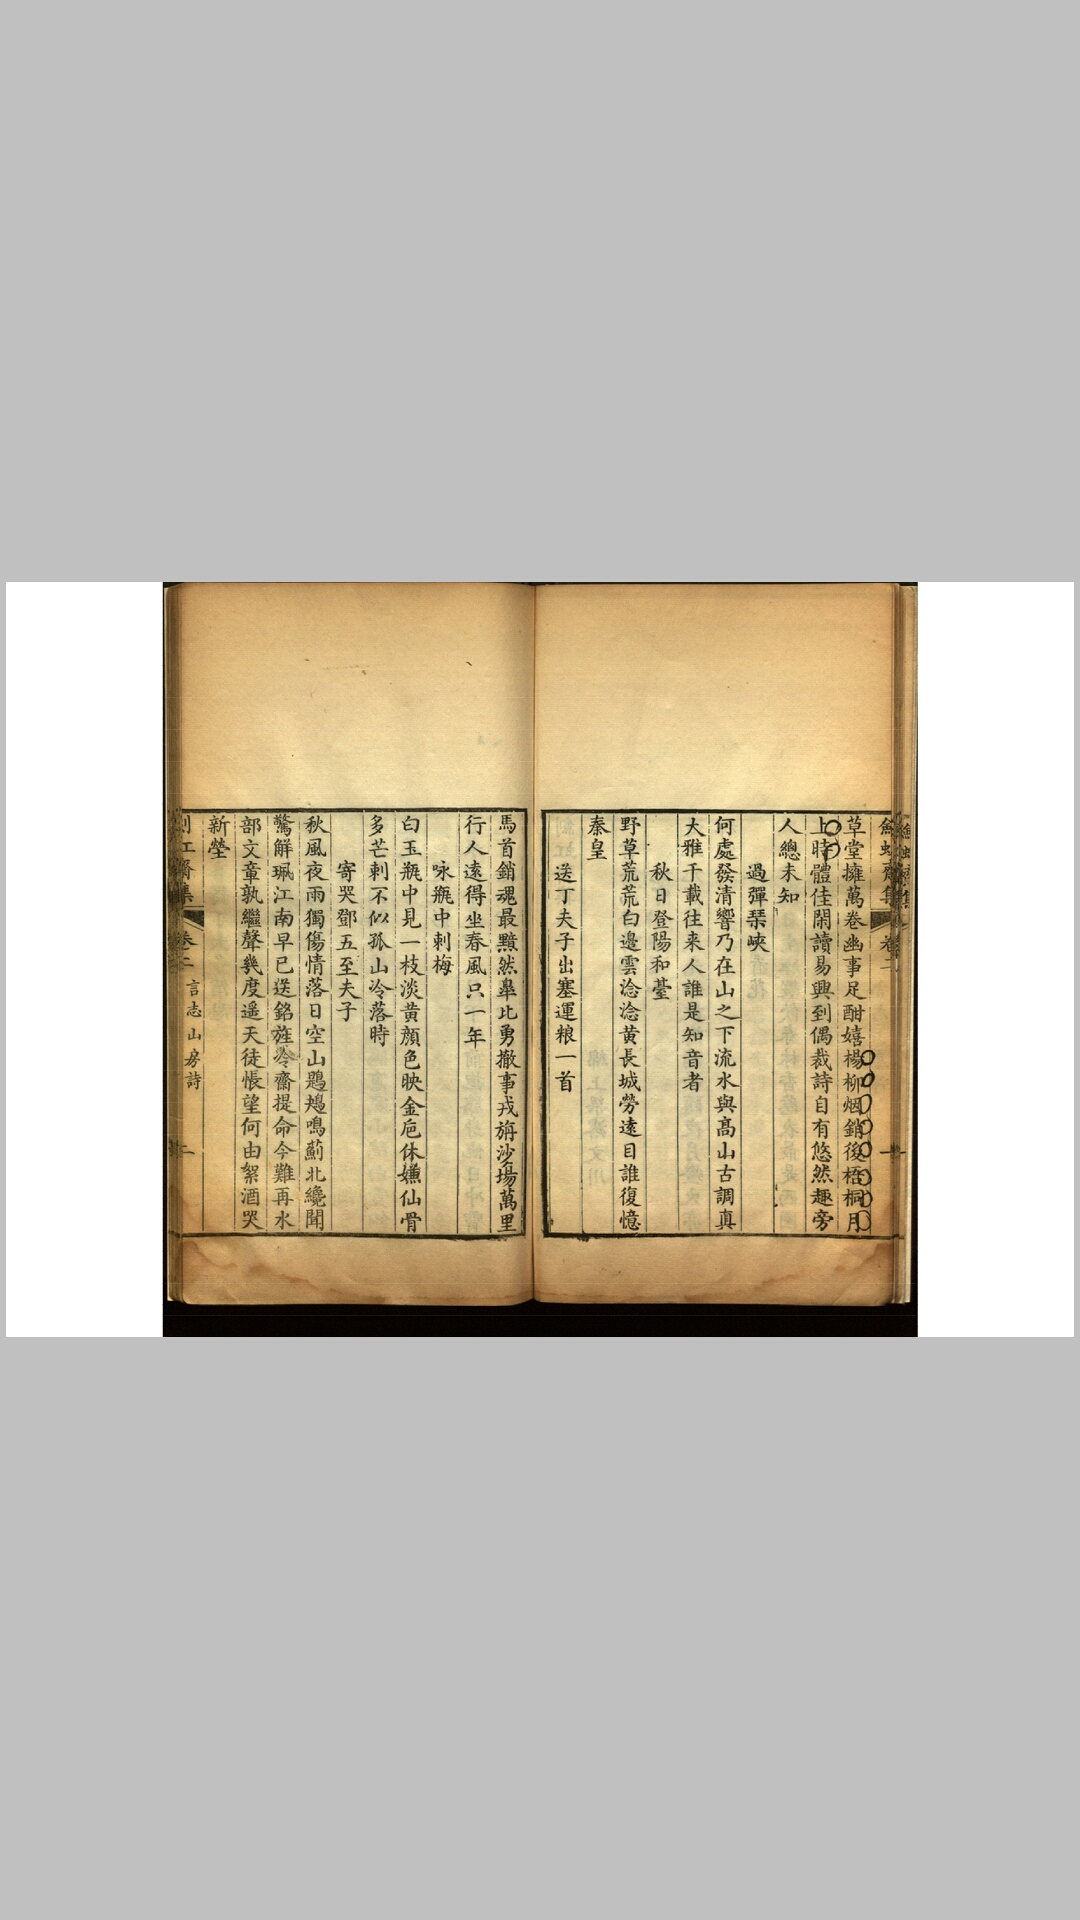 齋集 卷二
草堂擁萬卷幽事足酣嬉楊柳烟銷後梧桐月
上時體佳閑讀易興到偶裁詩自有悠然趣旁
人總未知
過彈琹峽
何處發清響乃在山之下流水與高山古調真
大雅千載往来人誰是知音者
秋日登陽和䑓
野草荒荒白邊雲淰淰黃長城勞遠目誰復憶
秦皇
送丁夫子出塞運粮一首
馬首銷魂最黯然皋比勇撤事戎旃沙場萬里
行人遠得坐春風只一年
咏甁中刺梅
白玉甁中見一枝淡黄顔色映金巵休嫌仙骨
多芒刺不似孤山冷落時
寄哭鄧五至夫子
秋風夜雨獨傷情落日空山鶗鴂鳴薊北纔聞
驚解珮江南早已送銘旌冷齋提命今難再水
部文章孰繼聲幾度遥天徒悵望何由絮酒哭
新塋
齋集 卷二 言志山房詩 二